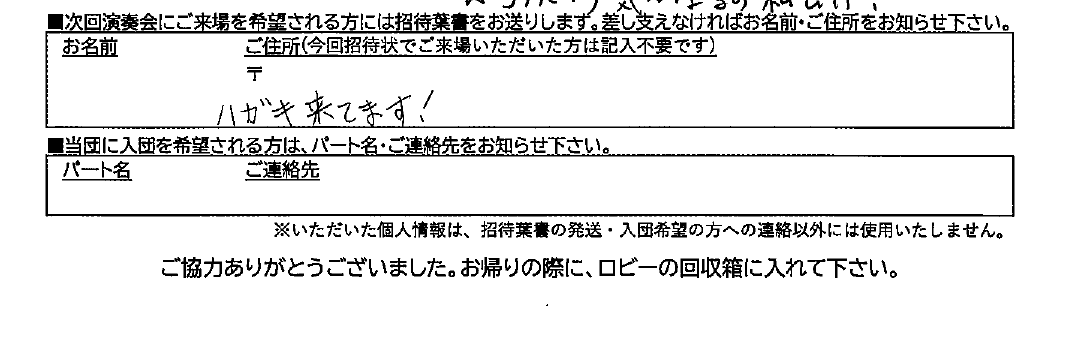 ■次回演奏会にご来場を希望される方には招待葉書をお送りします。差し支えなければお名前・ご住所をお知らせ下さい。
お名前 ご住所(今回招待状でご来場いただいた方は記入不要です)
〒
ハガキ来てます!
■当団に入団を希望される方は、パート名・ご連絡先をお知らせ下さい。
パート名 ご連絡先
※いただいた個人情報は、招待葉書の発送・入団希望の方への連絡以外には使用いたしません。
ご協力ありがとうございました。お帰りの際に、ロビーの回収箱に入れて下さい。